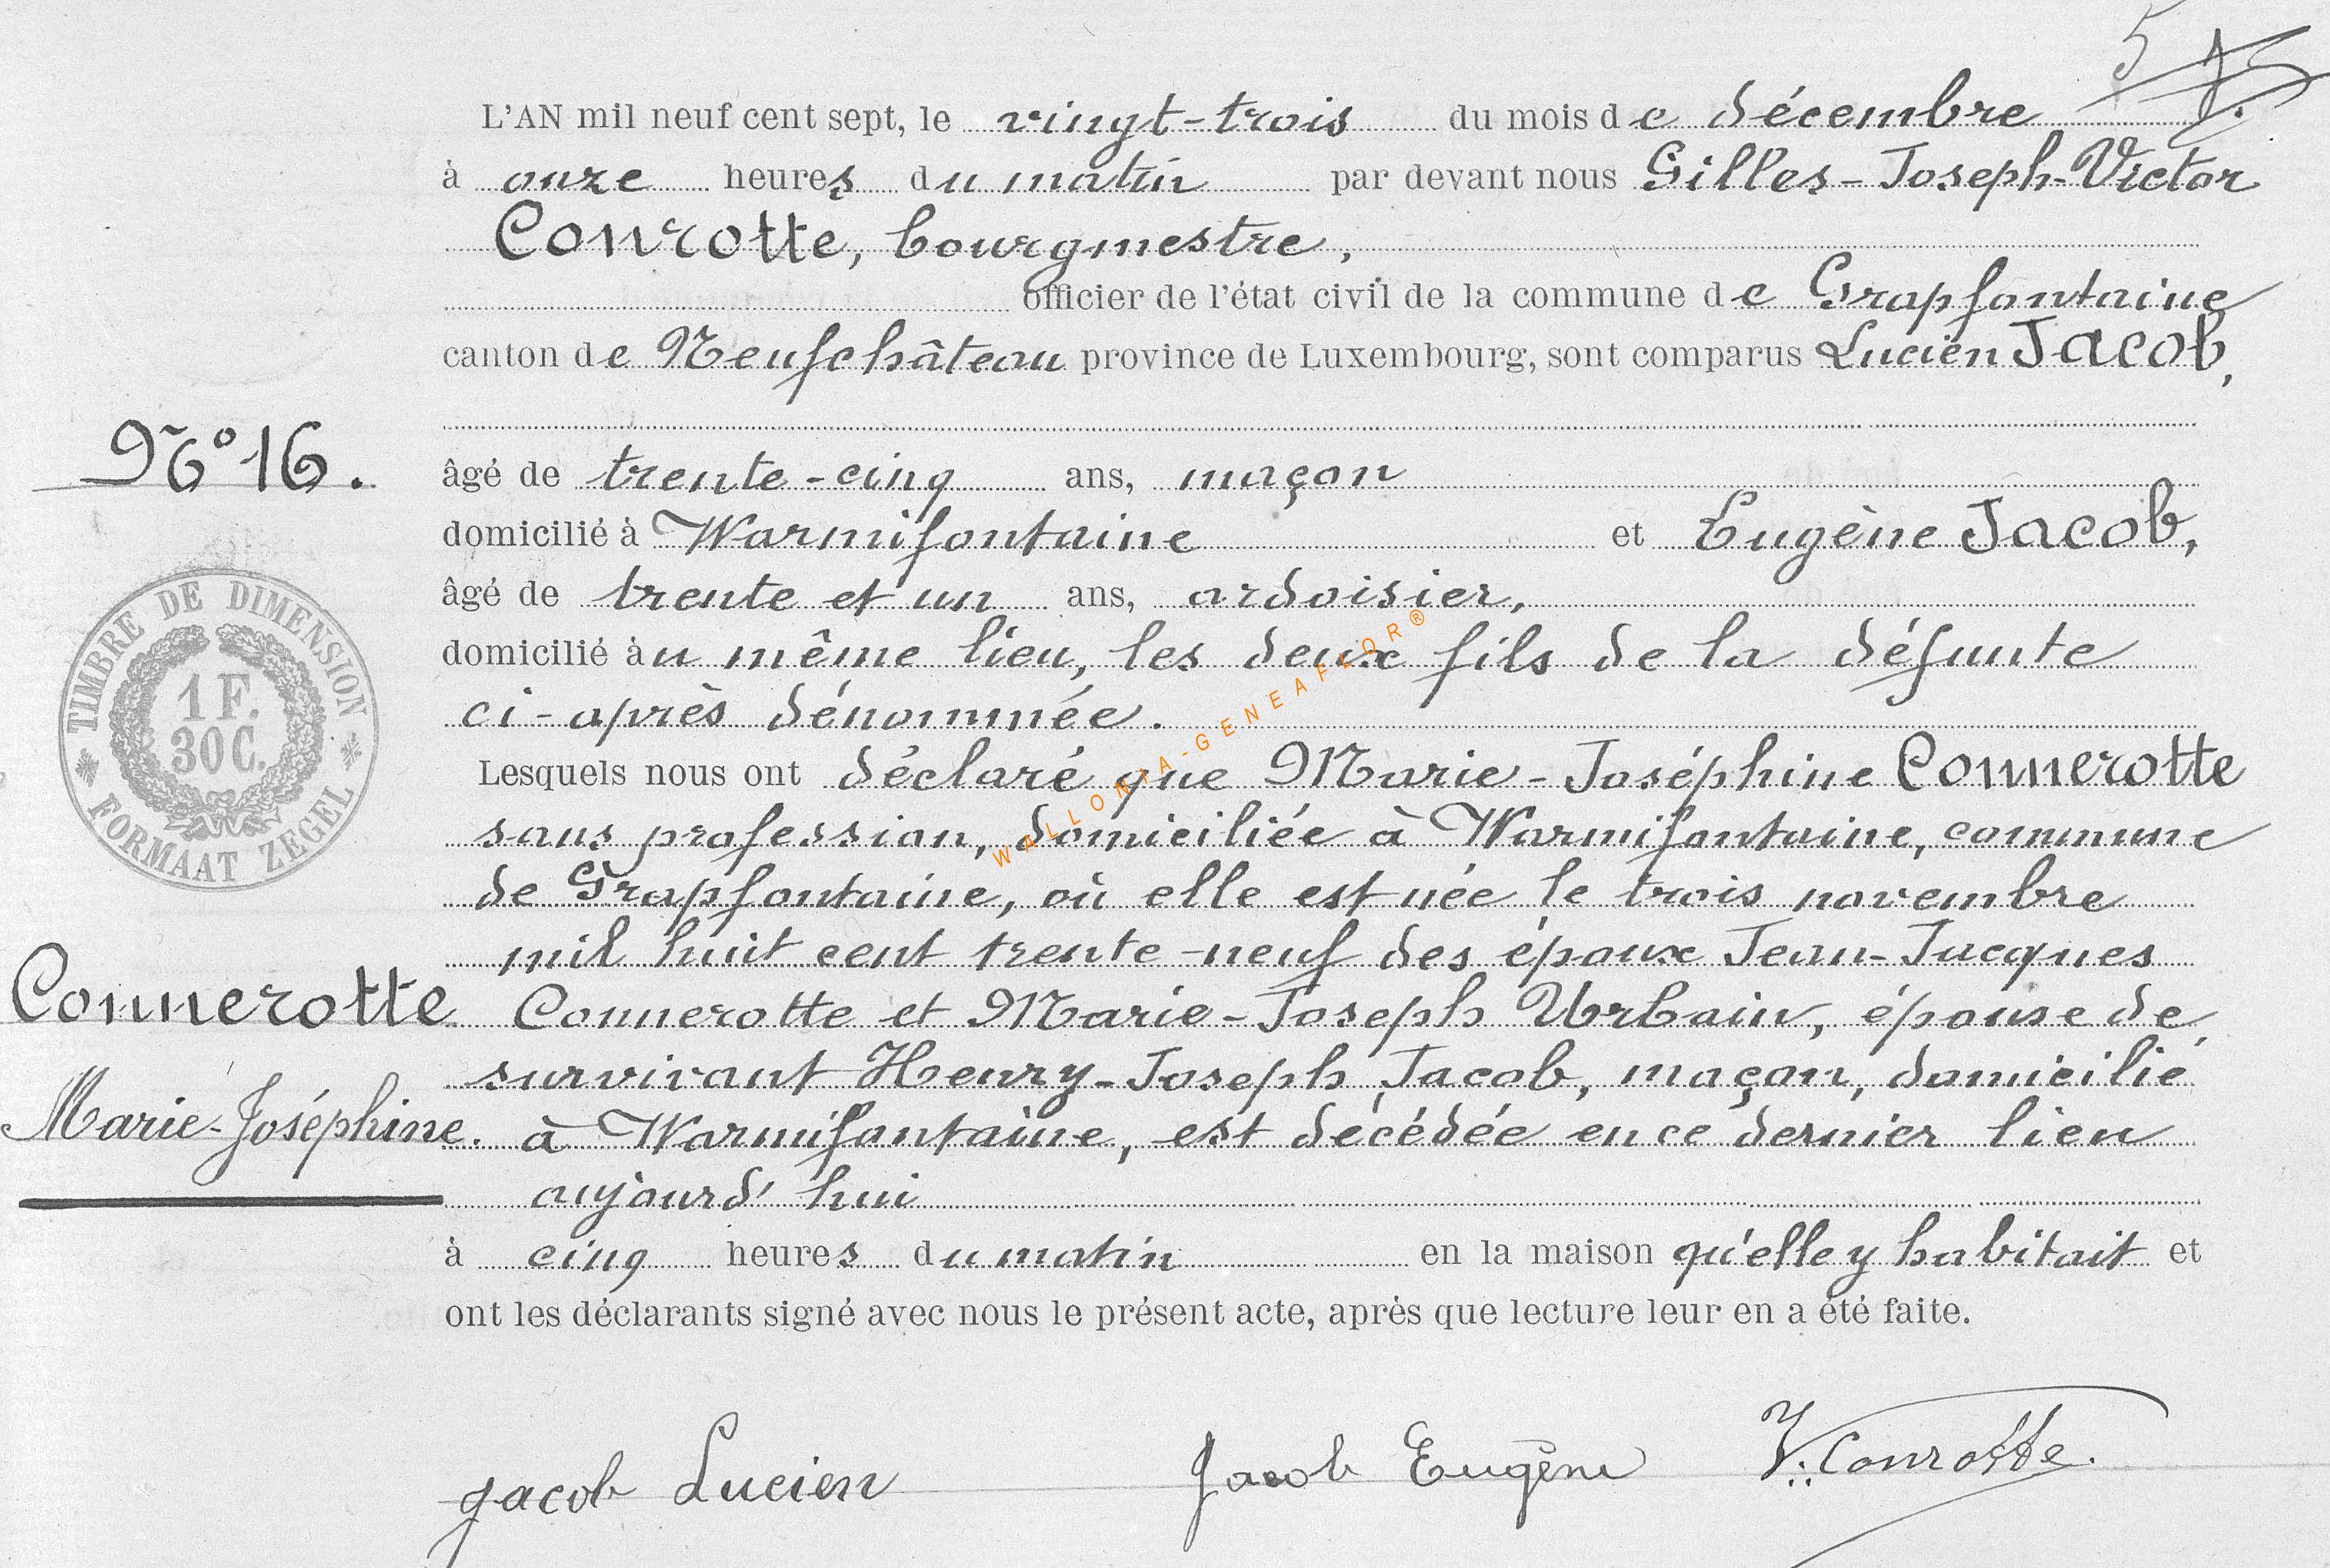 5
L'AN mil neuf cent sept, le vingt-trois du mois de décembre
à onze heures du matin par devant nous Gilles-Joseph-Victor
Conrotte, bourgmestre,
officier de l'état civil de la commune de Grapfontaine
canton de Neufchâteau province de Luxembourg, sont comparus Lucien JACOB,
N° 16.
âgé de trente-cinq ans, maçon
domicilié à Warmifontaine et Eugène Jacob,
âgé de trente et un ans, ardoisier,
domicilié au même lieu, les deux fils de la défunte
ci-après dénommée.
TIMBRE DE DIMENSION
1 F.
30 C.
FORMAAT ZEGEL
WALLONIA-GENEAFLOR®
Lesquels nous ont déclaré que Marie-Joséphine Connerotte
sans profession, domiciliée à Warmifontaine, commune
de Grapfontaine, où elle est née le trois novembre
mil huit cent trente-neuf des époux Jean-Jacques
Connerotte
Connerotte et Marie-Joseph Urbain, épouse de
survivant Henry-Joseph Jacob, maçon, domicilié
Marie-Joséphine.
à Warmifontaine, est décédée en ce dernier lieu
aujourd'hui
à cinq heures du matin en la maison qu'elle y habitait et
ont les déclarants signé avec nous le présent acte, après que lecture leur en a été faite.
Jacob Lucien Jacob Eugène V. Conrotte.